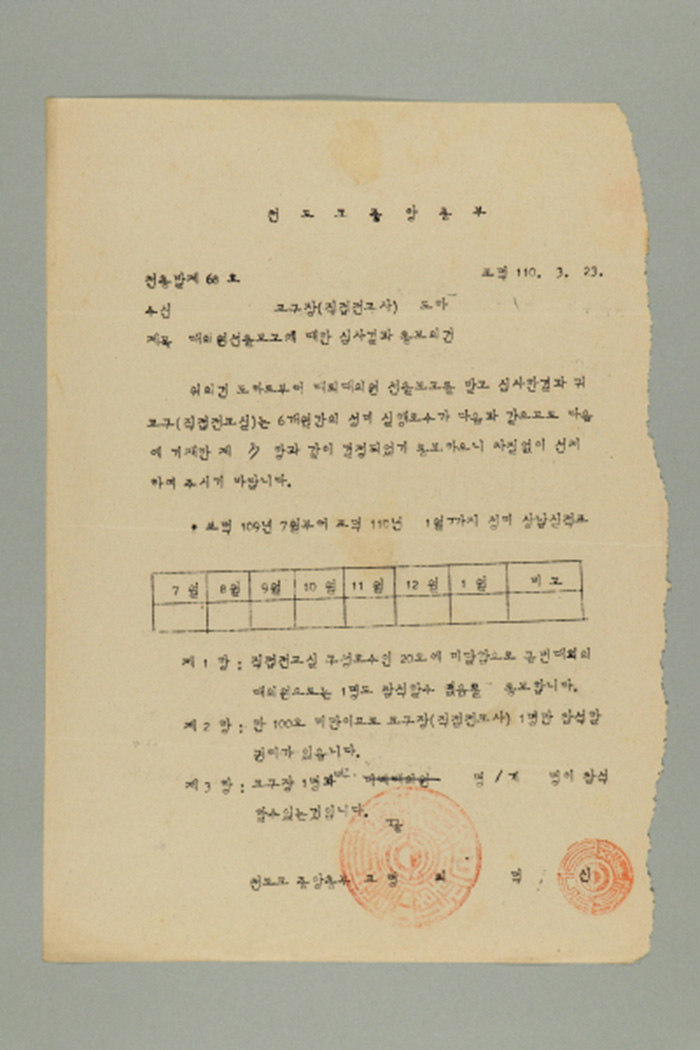 천도교중앙총부
천총발제 68 호
포덕 110. 3. 23.
수신 교구장(직접전교사) 도하
제목 대의원선출보고에 대한 심사결과 통보의건
위의건 도하로부터 대회대의원 선출보고를 받고 심사한결과 귀
교구(직접전교실)는 6개월간의 성미 실행호수가 다음과 같으므로 다음
에 기재한 제 항과 같이 결정되었기 통보하오니 차질없이 선처
하여 주시기 바랍니다.
* 포덕 109년 7월부터 포덕 110년 1월까지 성미 상납실적표
7 월 8월 9월 10 월 11 월 12 월 1 월 비 고
제 1 항 : 직접전교실 구성호수인 20호에 미달함으로 금번대회의
대의원으로는 1명도 참석할수 없음을 통보합니다.
제 2 항 : 만 100호 미만이므로 교구장(직접전교사) 1명만 참석할
권리가 있읍니다.
제 3 항 : 교구장 1명과 명 / 계 명이 참석
할수있는것입니다.
천도교 중앙총부 교령 최 덕 신